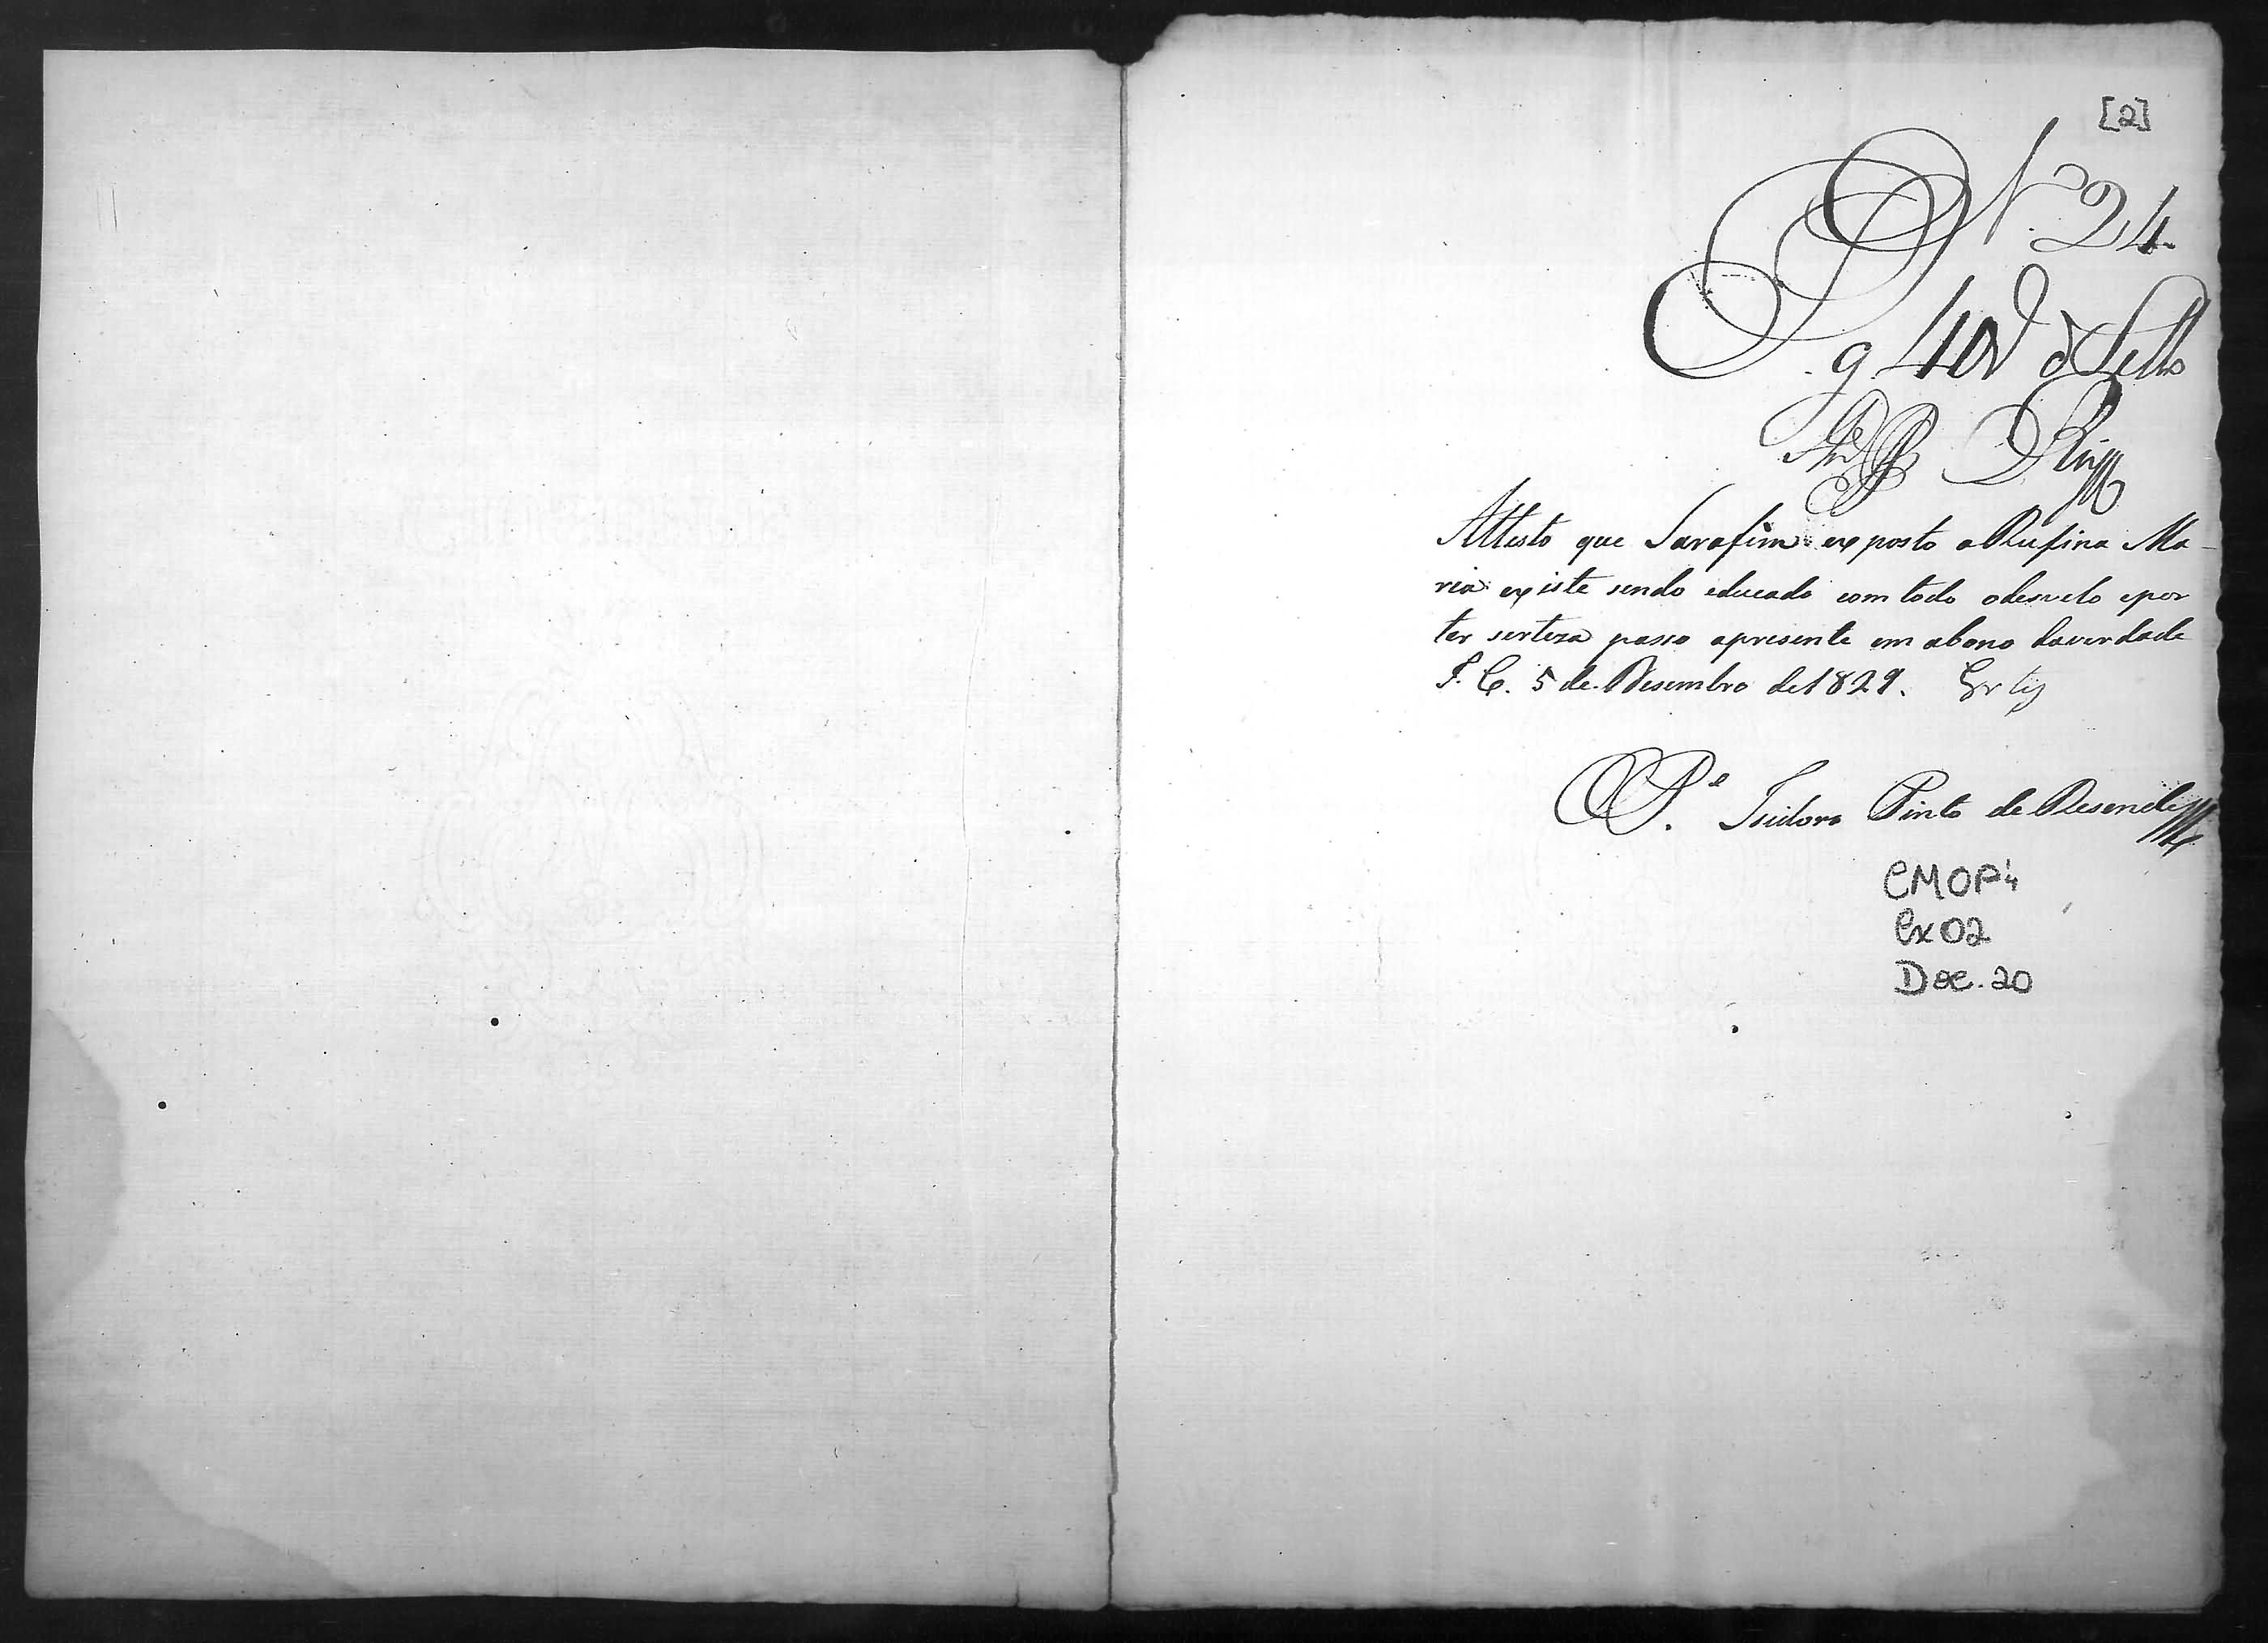 [2]
N. 24
Pg. 40 d Sello
Attesto que Sarafim exposto a Rufina Ma-
ria existe sendo educado com todo odesvelo epor
ter serteza passo apresente em abono daverdade
5 de Desembro de 1829.
Pe. Isidoro Pinto de Resende
CMOP
Cx 02
Doc. 20